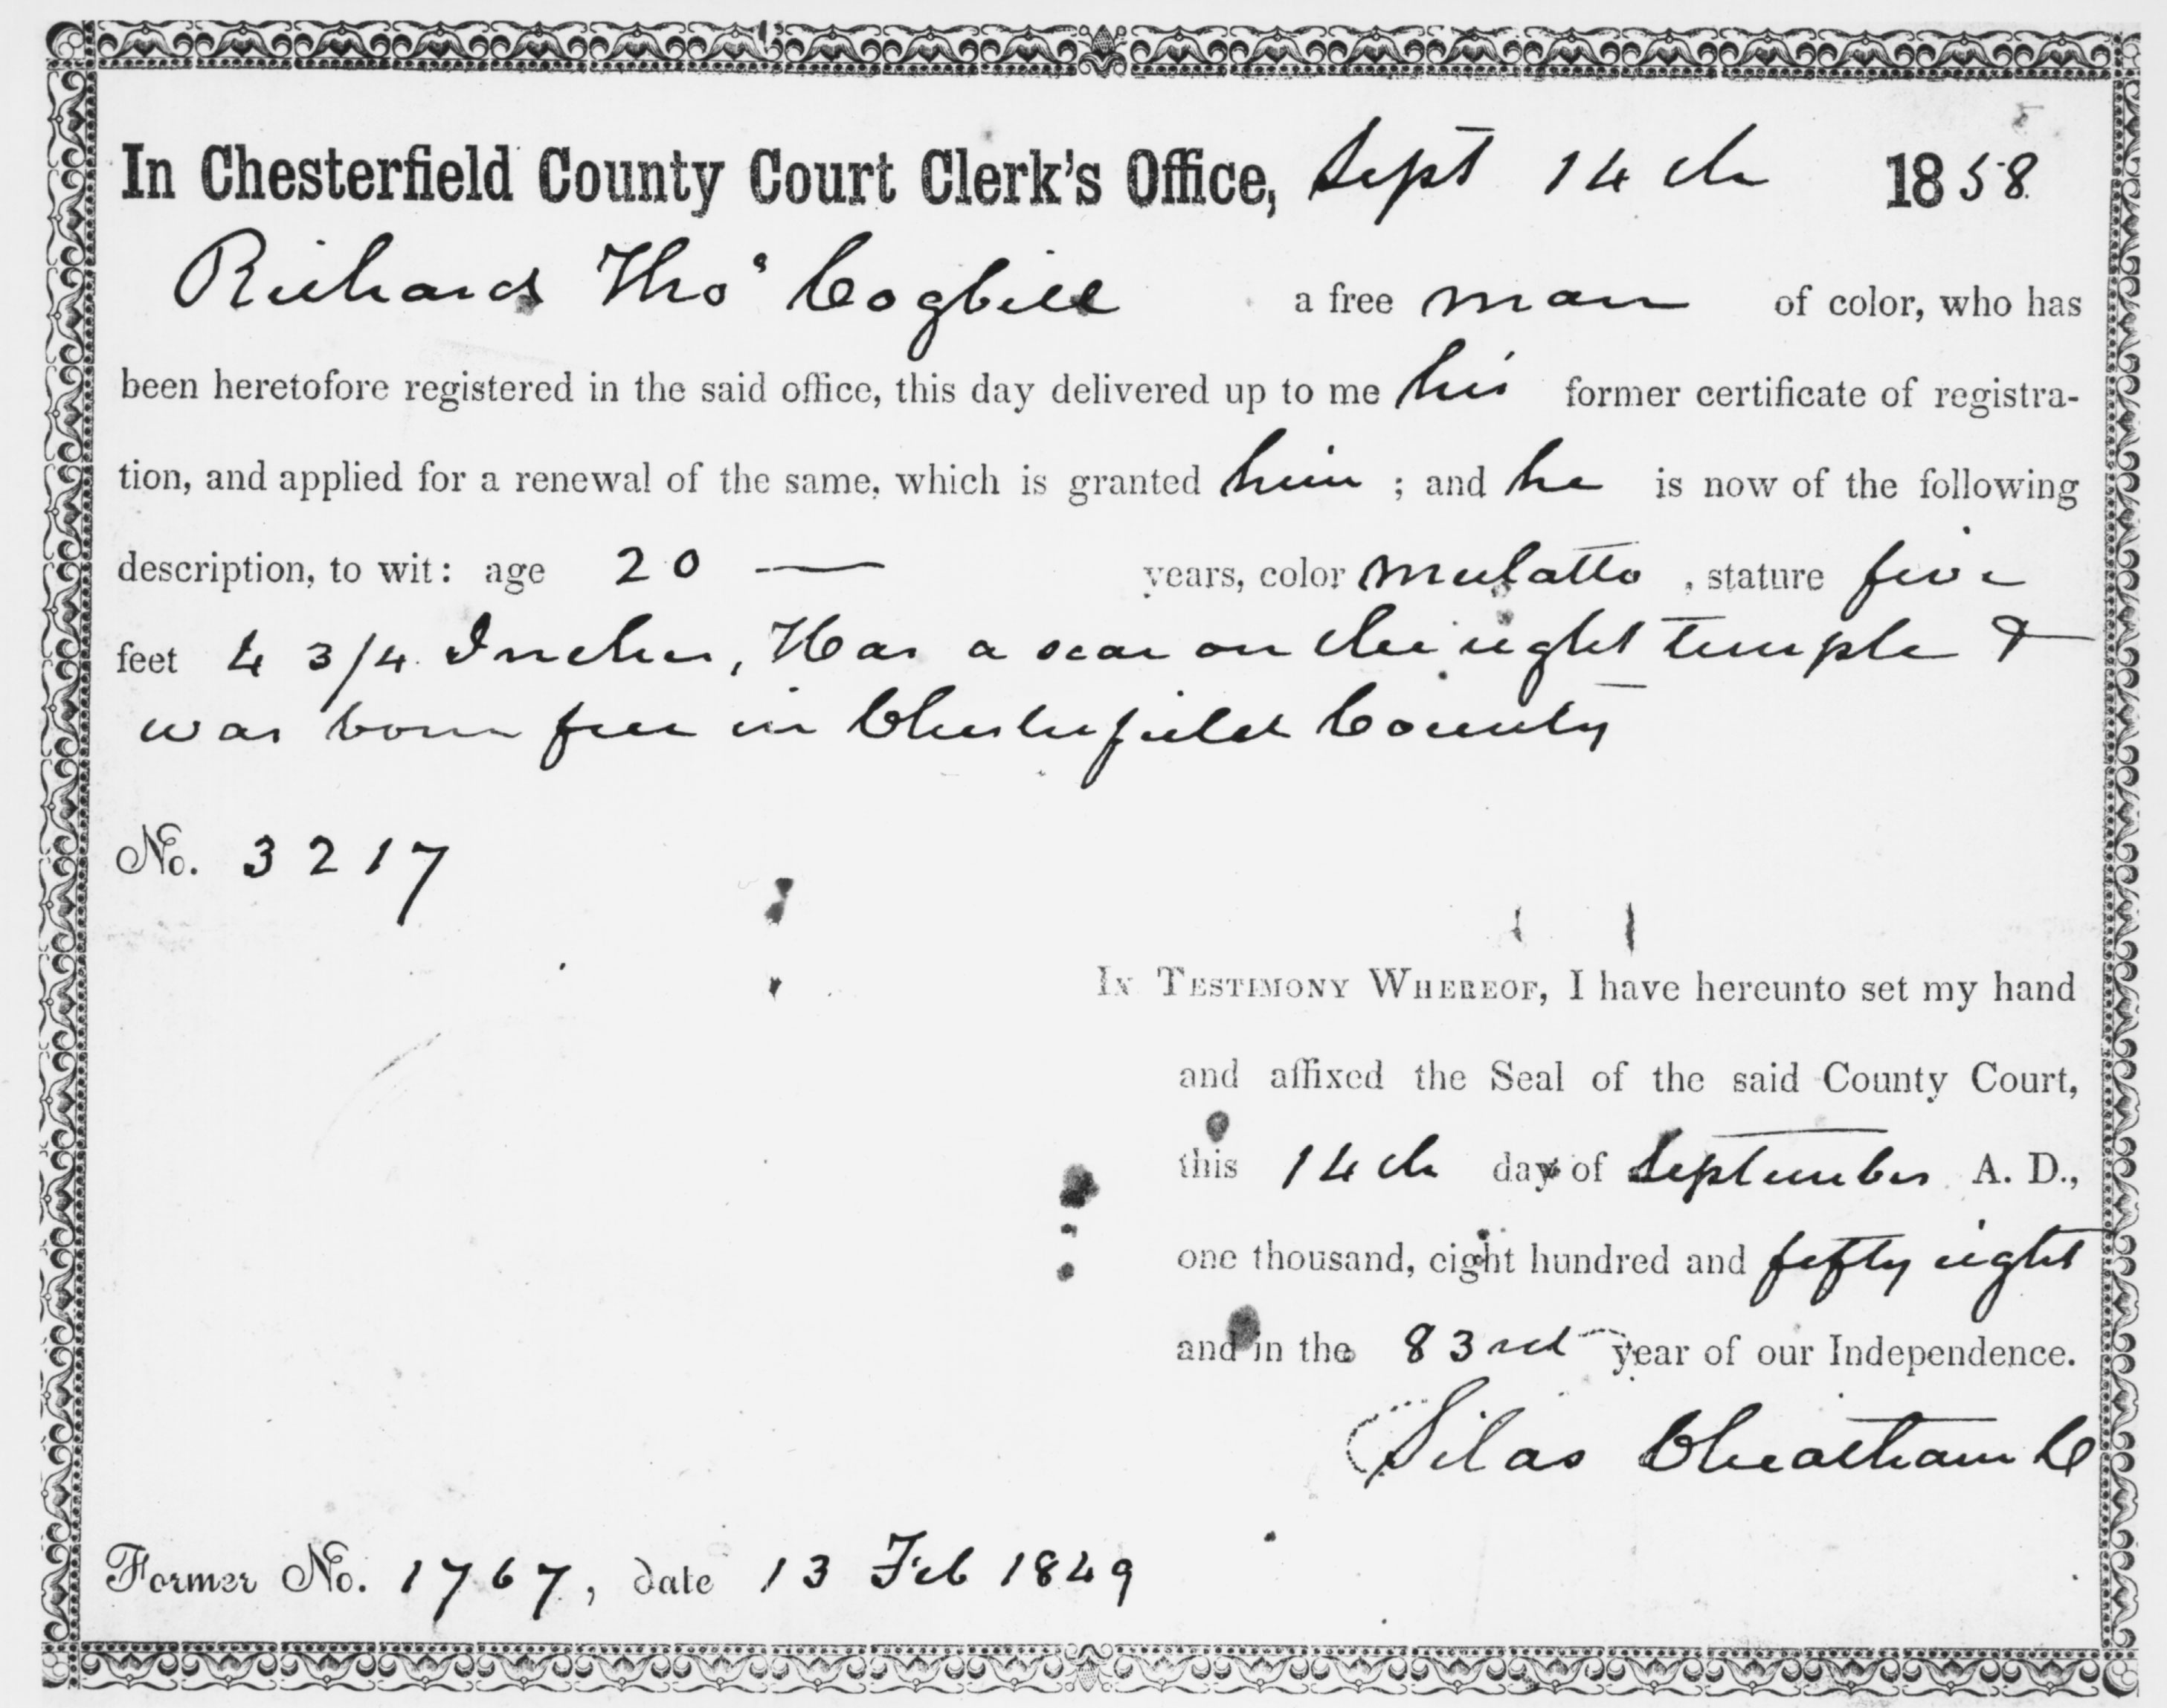 In Chesterfield County Court Clerk's Office, Sept 14th 1858
Richard Thos Cogbill a free man of color, who has
been heretofore registered in the said office, this day delivered up to me his former certificate of registra-
tion, and applied for a renewal of the same, which is granted him ; and he is now of the following
description, to wit: age 20 — years, color mulatto , stature five
feet 4 3/4 Inches, Has a scar on the right temple &
was born free in Chesterfield County
No. 3217
In Testimony Whereof, I have hereunto set my hand
and affixed the Seal of the said County Court,
this 14th day of September A. D.,
one thousand, eight hundred and fifty eight
and in the 83rd year of our Independence.
Silas Cheatham C
Former No. 1767, date 13 Feb 1849